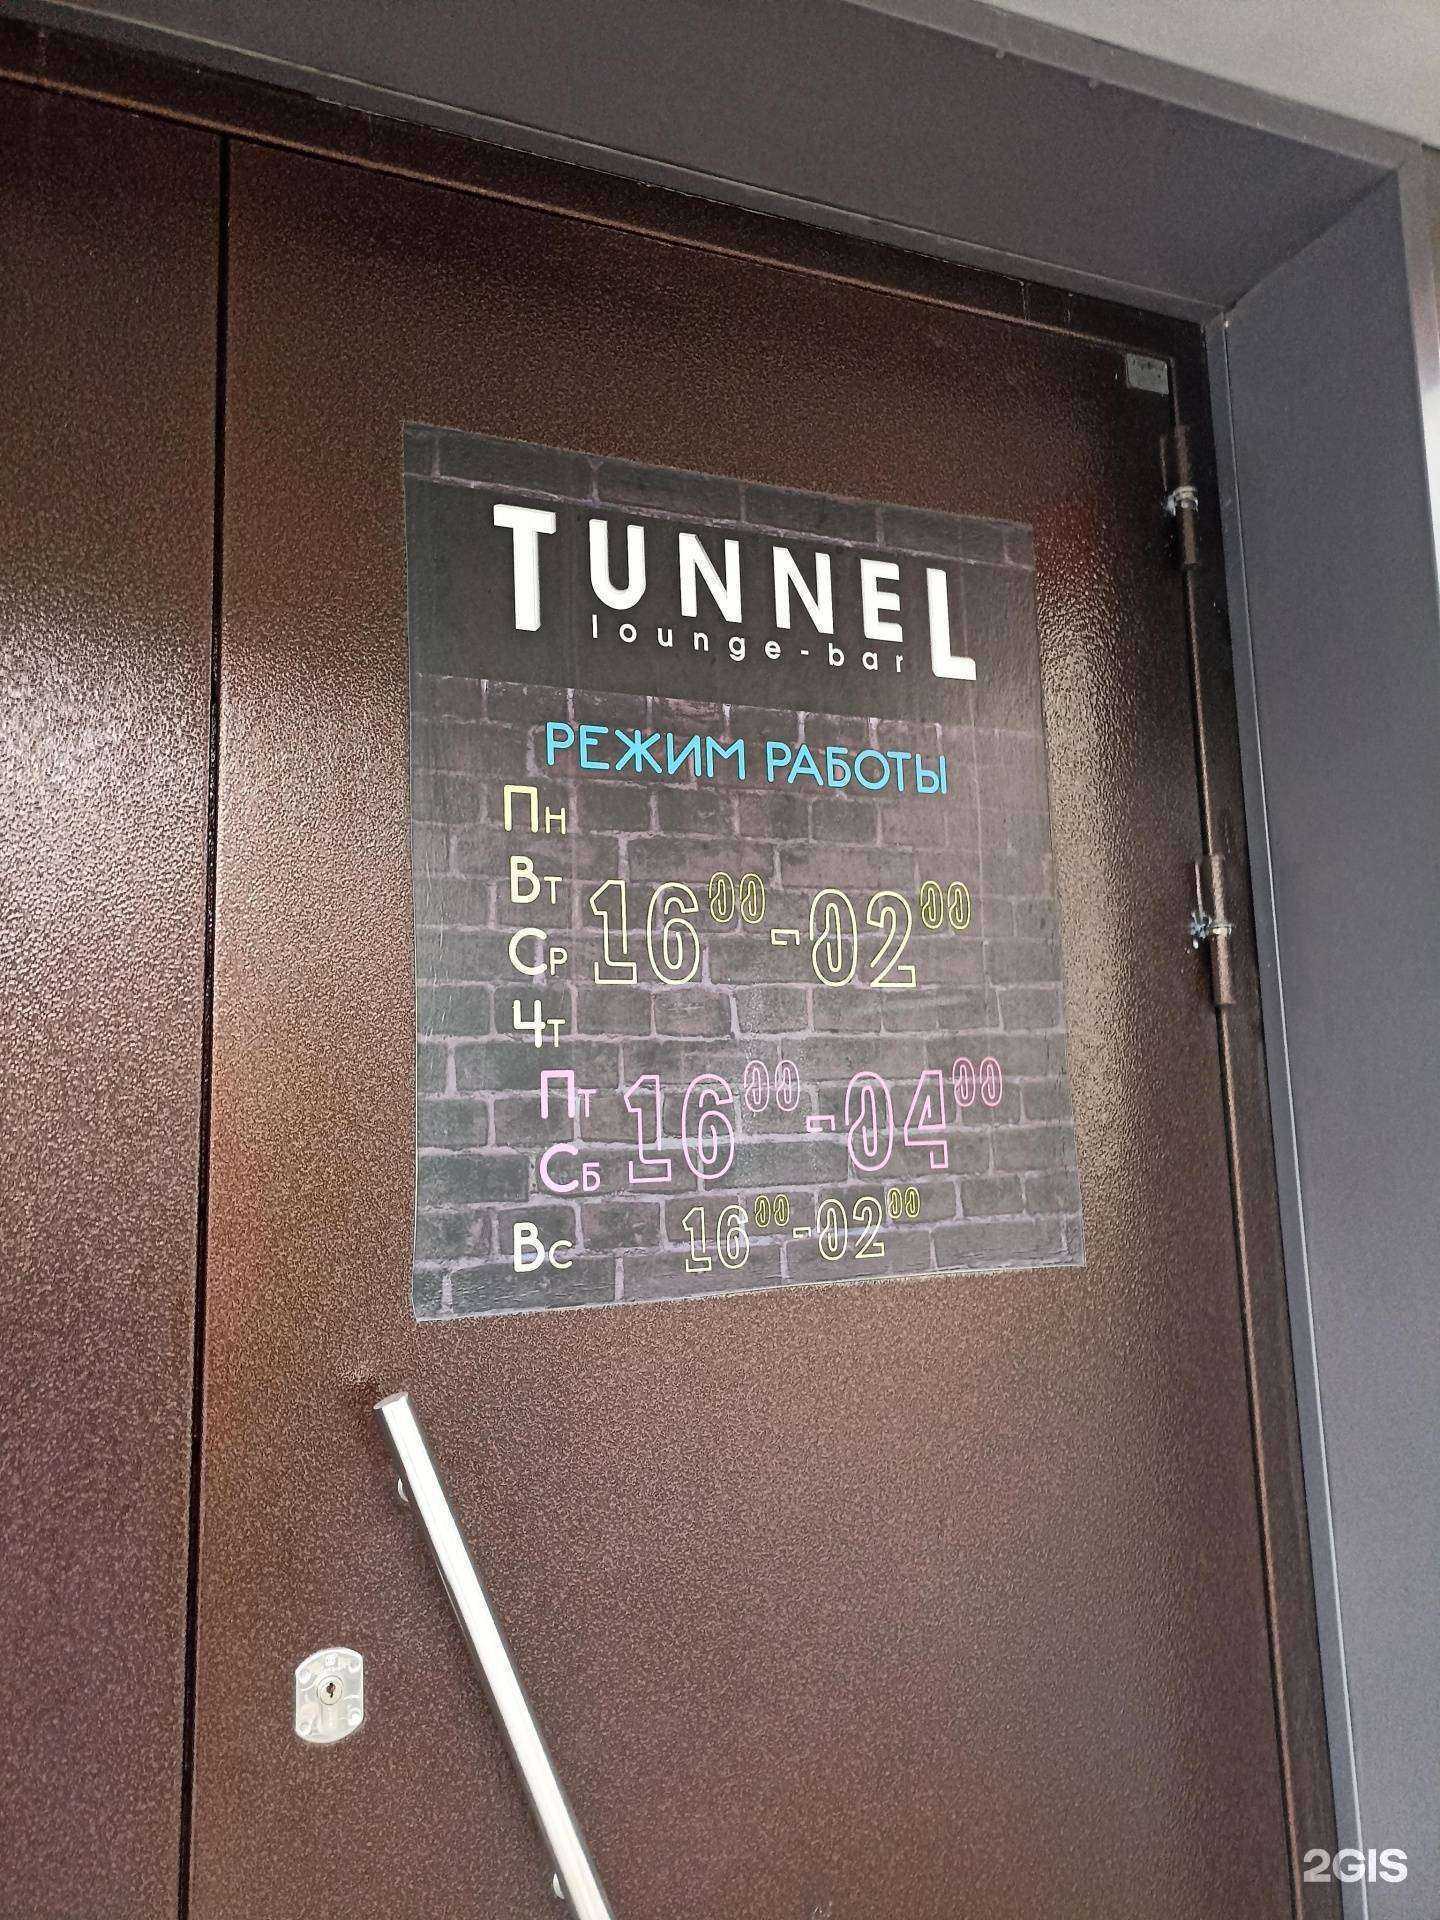 TUNNEL
lounge-bar
РЕЖИМ РАБОТЫ
Пн
Вт
Ср 16⁰⁰-02⁰⁰
Чт
Пт
Сб 16⁰⁰-04⁰⁰
Вс 16⁰⁰-02⁰⁰
2GIS